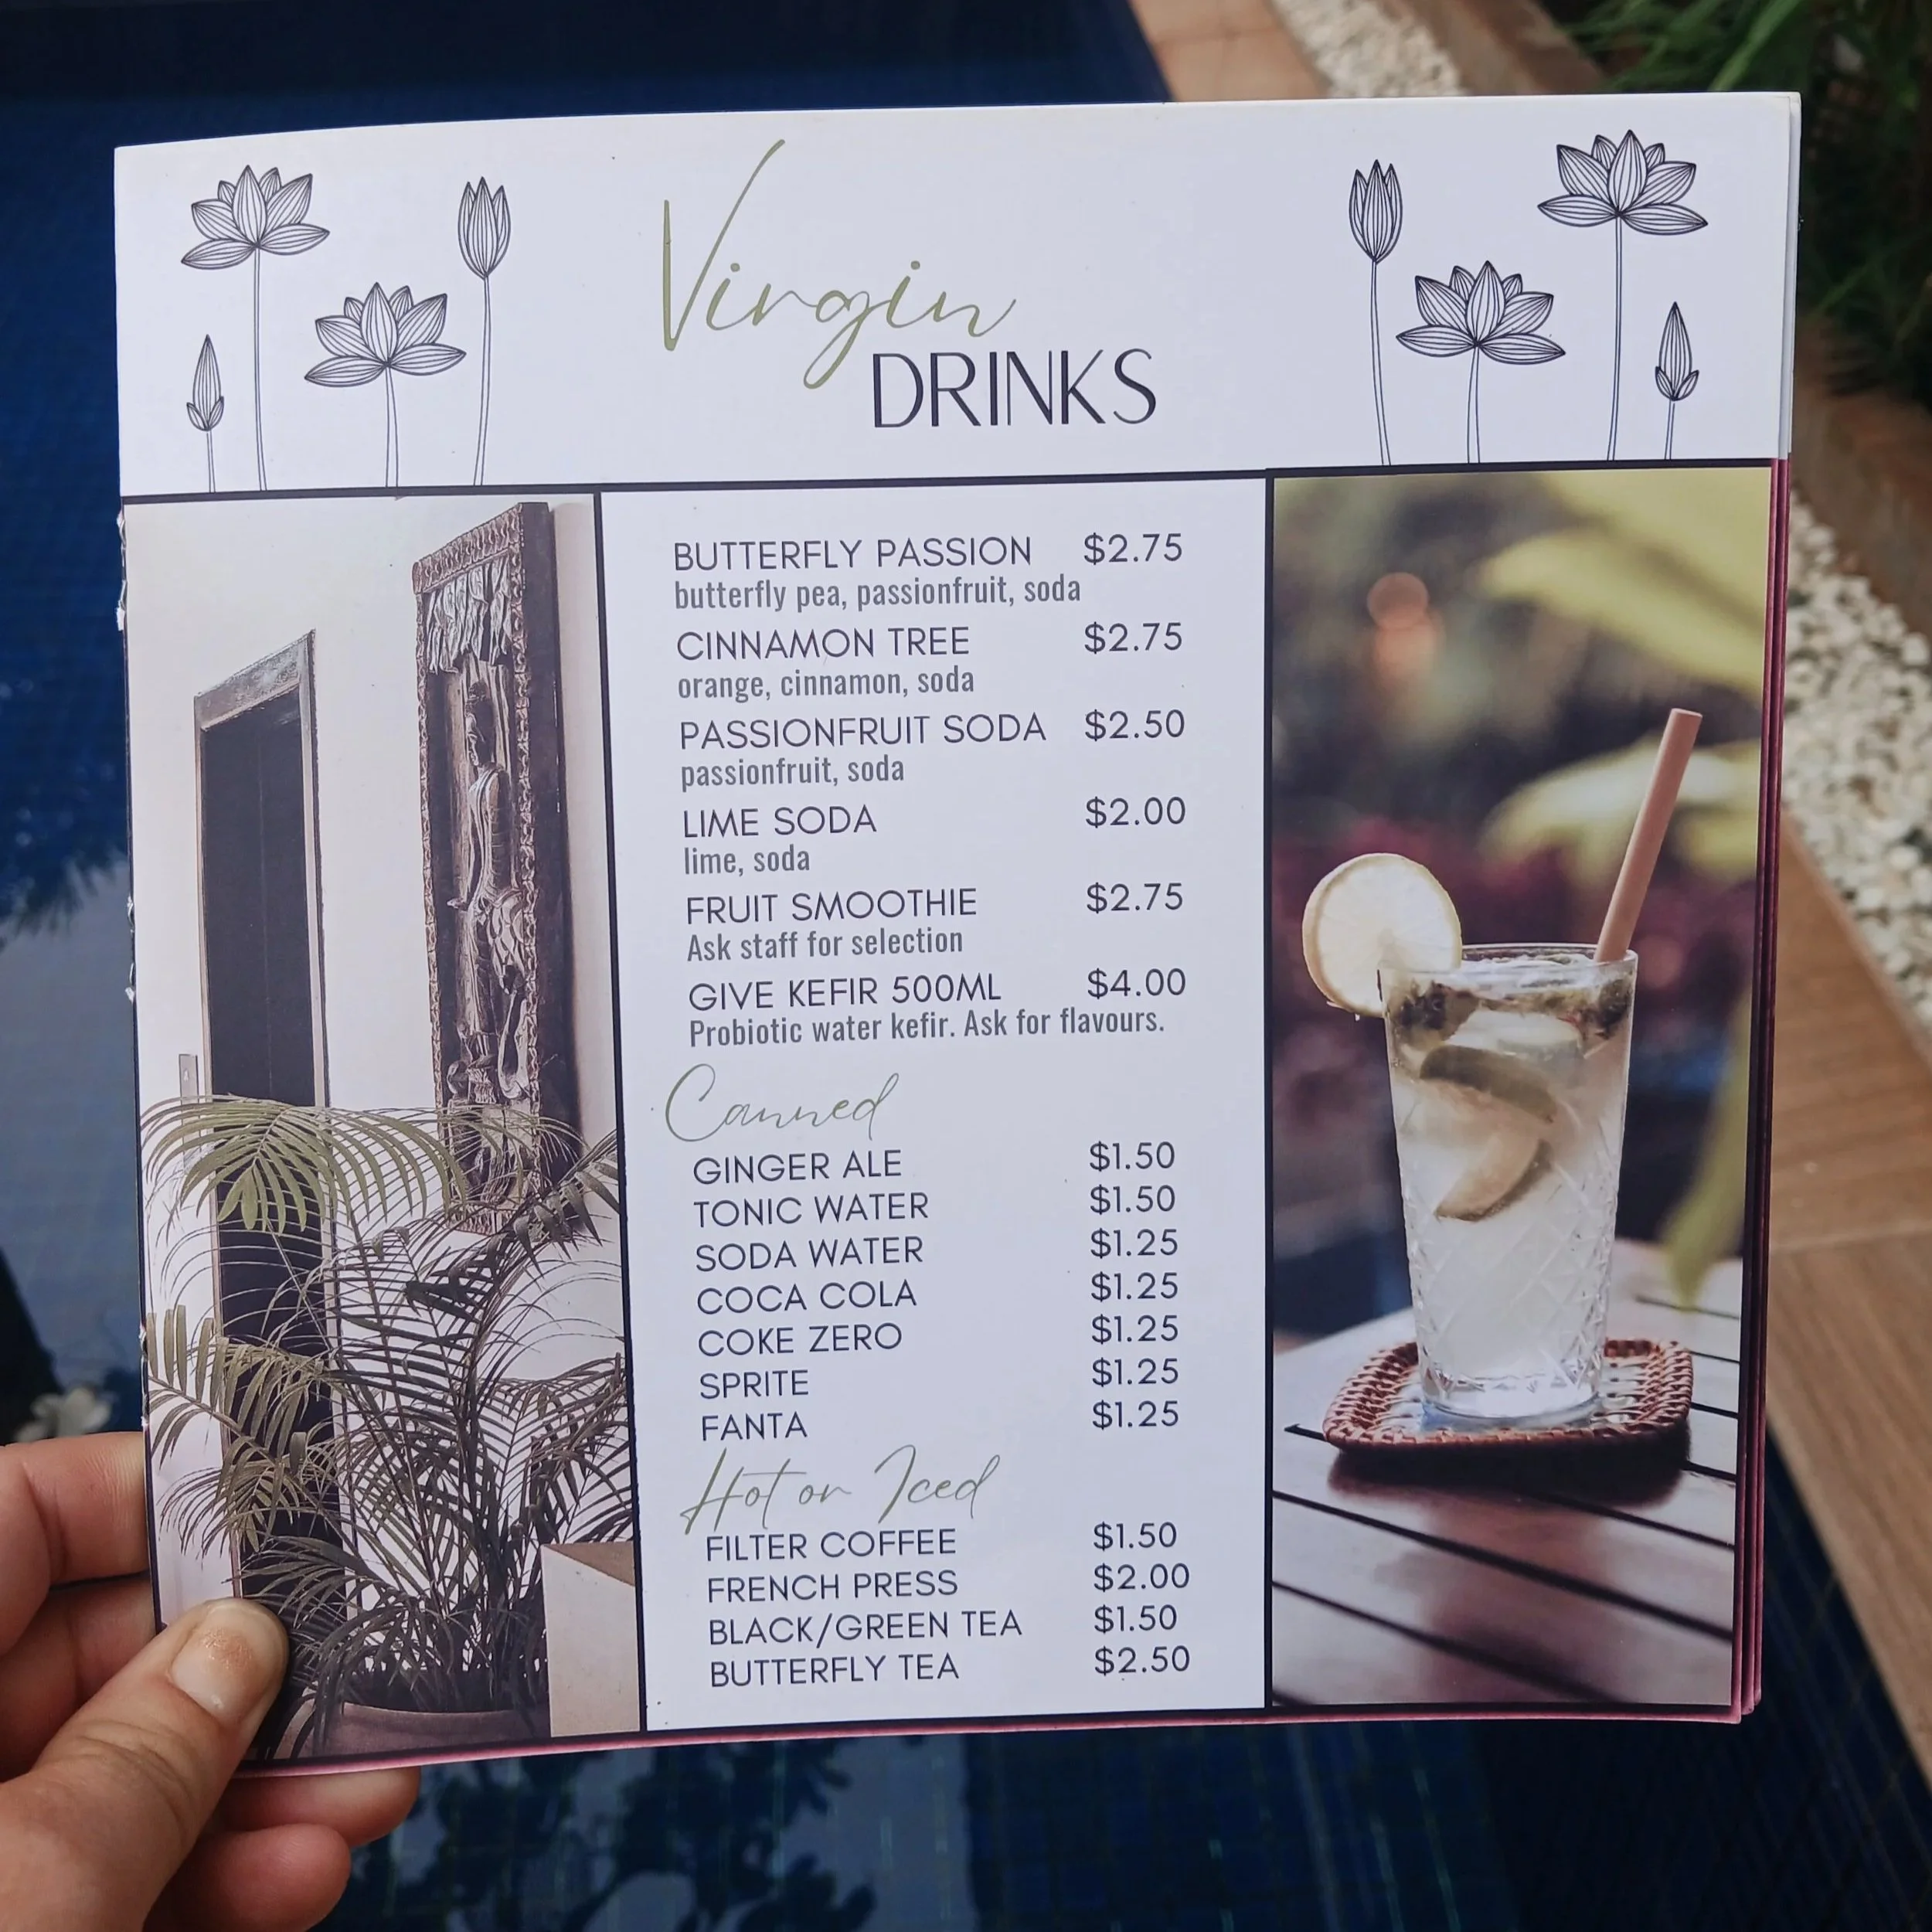 Virgin
DRINKS
BUTTERFLY PASSION $2.75
butterfly pea, passionfruit, soda
CINNAMON TREE $2.75
orange, cinnamon, soda
PASSIONFRUIT SODA $2.50
passionfruit, soda
LIME SODA $2.00
lime, soda
FRUIT SMOOTHIE $2.75
Ask staff for selection
GIVE KEFIR 500ML $4.00
Probiotic water kefir. Ask for flavours.
Canned
GINGER ALE $1.50
TONIC WATER $1.50
SODA WATER $1.25
COCA COLA $1.25
COKE ZERO $1.25
SPRITE $1.25
FANTA $1.25
Hot or Iced
FILTER COFFEE $1.50
FRENCH PRESS $2.00
BLACK/GREEN TEA $1.50
BUTTERFLY TEA $2.50